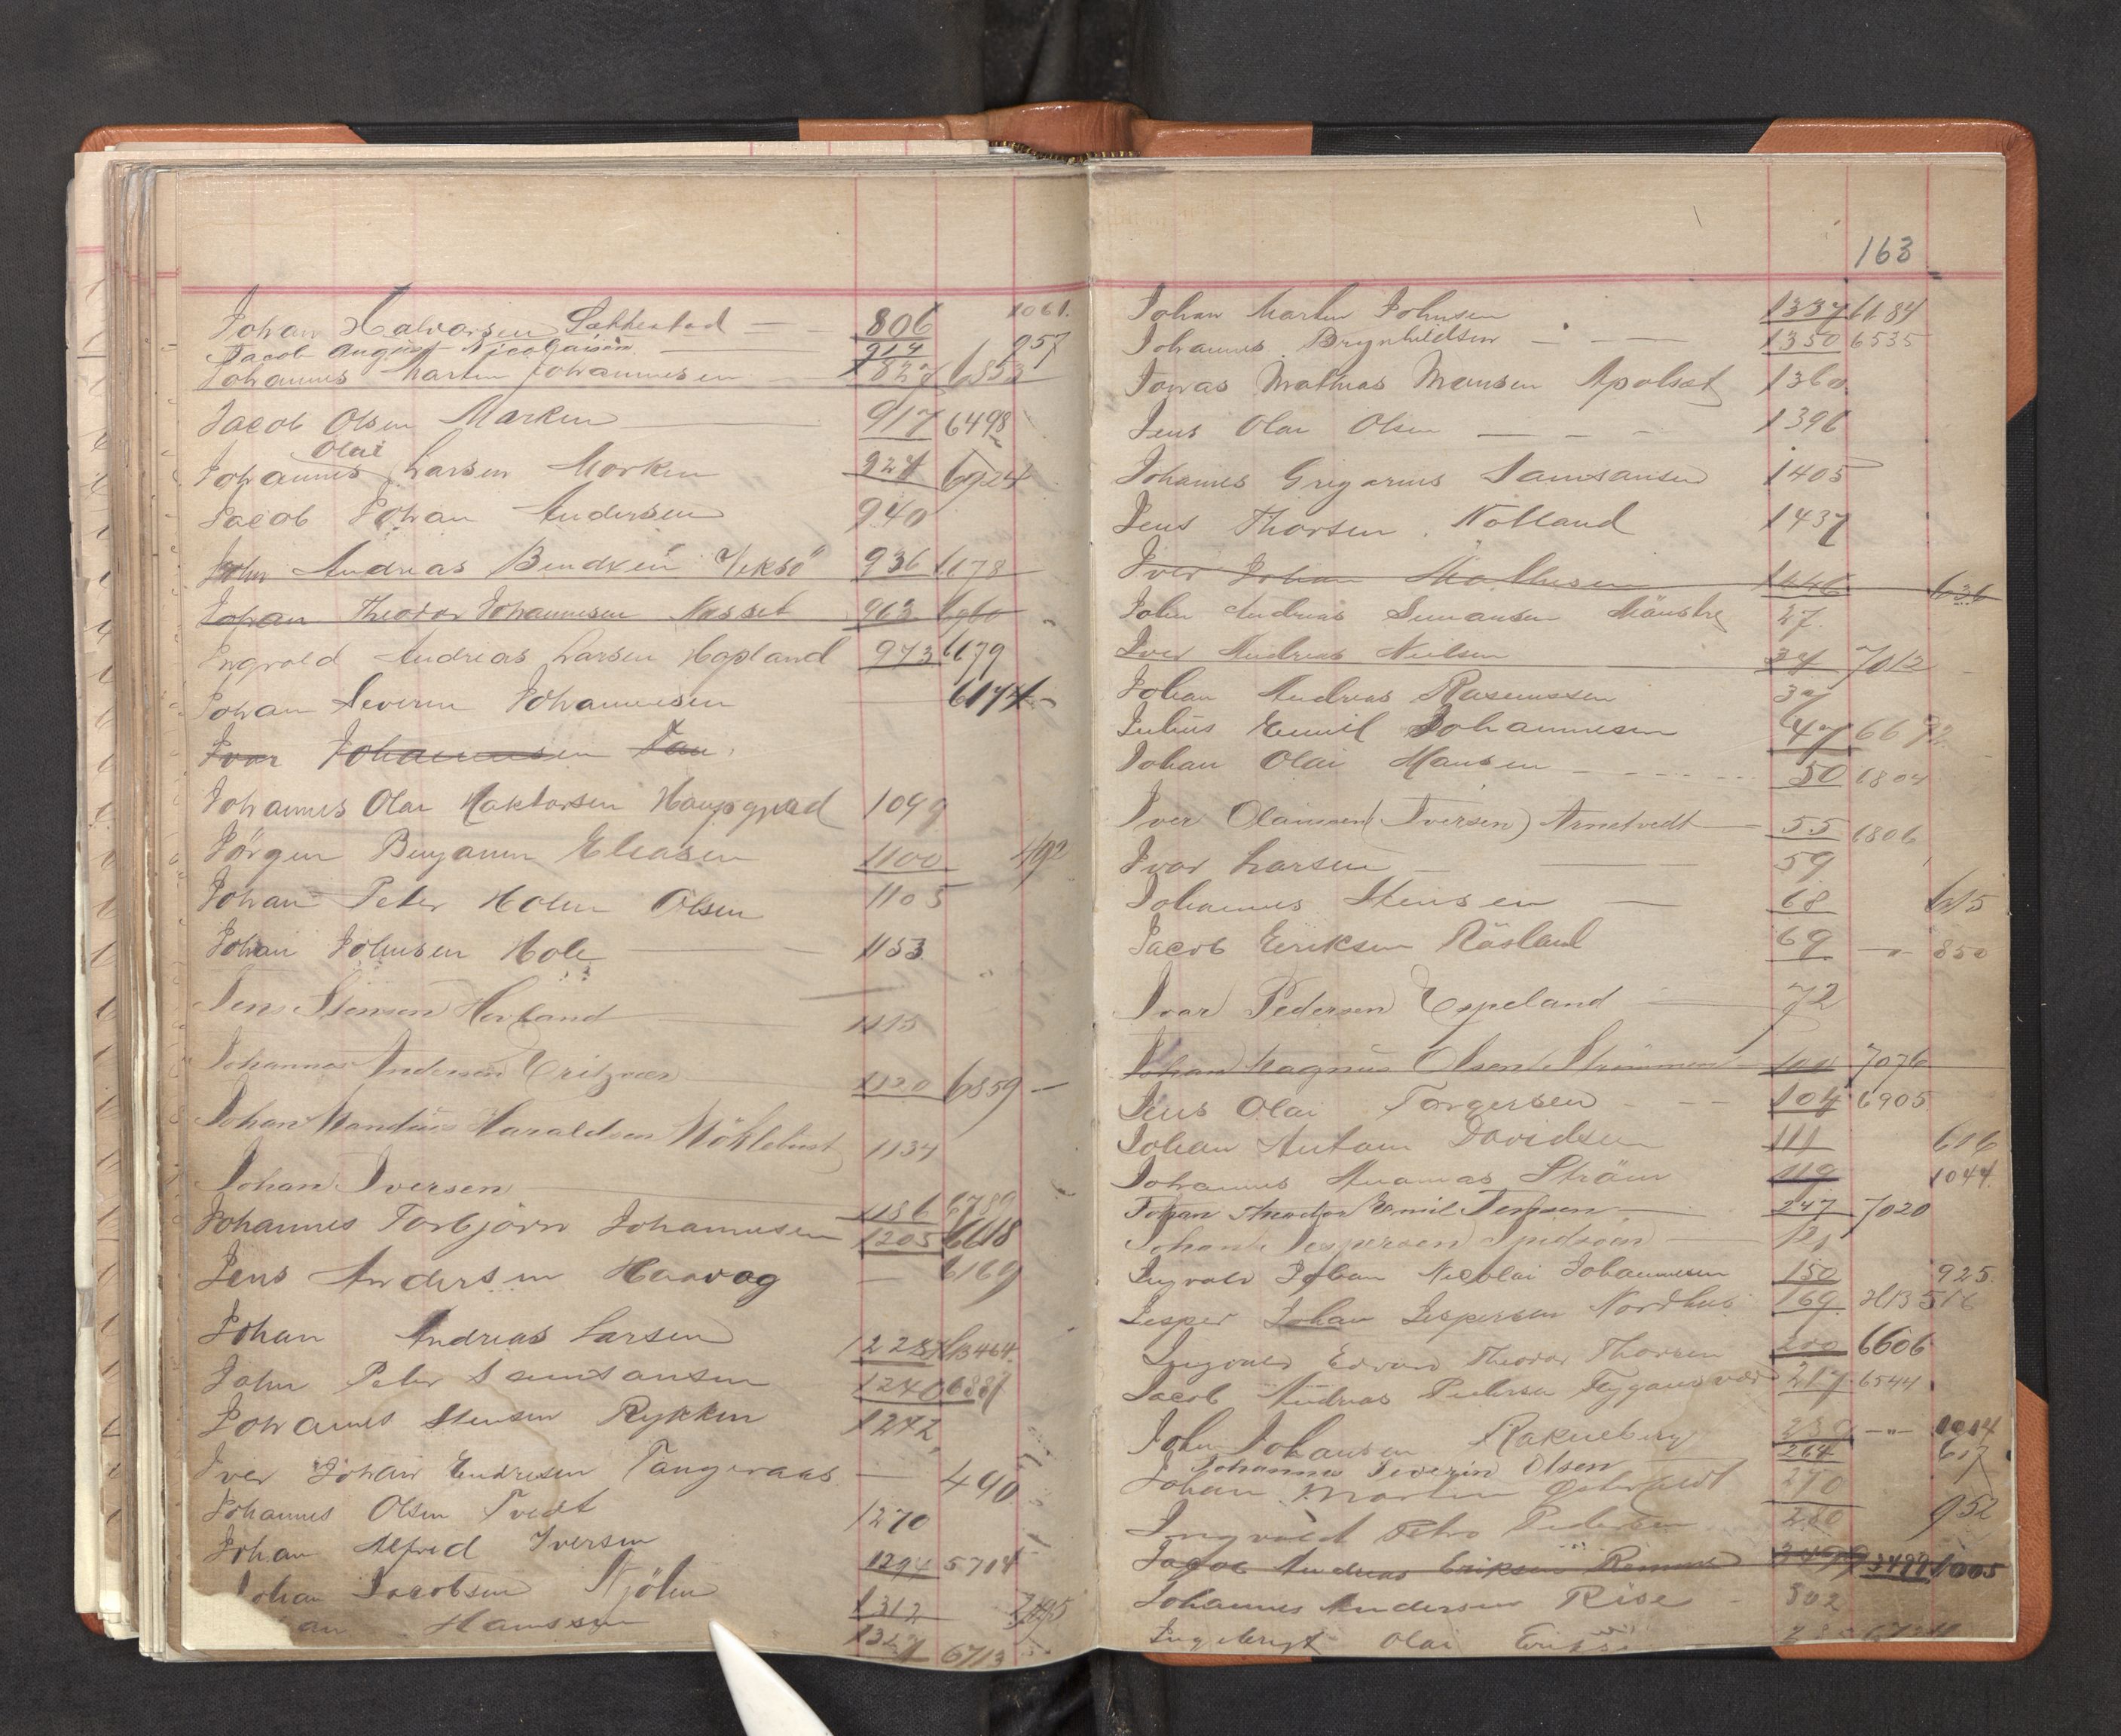 Johan Halvorsen Sækkestad — 806 1061.
Jacob August Nicolaisen — 914 957
Johannes Martin Johannesen — 827 6853
Jacob Olsen Marken — 917 6498
Olai
Johannes Larsen Morken 927 6924
Jacob Johan Andersen 940
John Andreas Bendxen Veksö 936 6178
Johan Theodor Johannesen Nasset 963 6960
Engvold Andreas Larsen Hopland 973 6179
Johan Severin Johannesen 6174 -
Ivar Johannesen Tau
Johannes Olai Haktorsen Haugsgjerd 1099
Jörgen Benjamin Eliasen 1100 492
Johan Peter Holm Olsen 1105
Johan Johnsen Hole — 1153
Jens Stensen Hovland — 1115
Johannes Andersen — 1120 6859 —
Johan Mandius Haraldsen Möklebust 1134
Johan Iversen — 1186 6789
Johannes Torbjörn Johannesen 1205 6618
Jens Andersen Haavag — 6169
Johan Andreas Larsen 1228 464
John Peter Samsonsen 1240 6887
Johannes Stensen Rykken 1242
Iver Johan Endresen Tangeraas — 490
Johannes Olsen Tvedt 1270
Johan Alfred Iversen 1294 5714
Johan Jacobsen Stjölen 1312
an Hanssen 1327 6713
163
Johan Martin Johnsen 1337 6184
Johannes Brynhildsen — — 1350 6535
Jonas Mathias Monsen Apolset 1360
Jens Olai Olsen — — — 1396
Johannes Grigorius Samsonsen 1405
Jens Thorsen Nolland 1437
Iver Johan Mathisen 1446 636
John Andreas Simonsen 27.
Iver Andreas Nielsen 34 7012
Johan Andreas Rasmussen 37
Julius Emil Johannesen 47 6692
Johan Olai Monsen — 50 6804
Iver Olaussen (Iversen) Arnetvedt — 55 6806
Ivar Larsen — — 59
Johannes Stensen — 68 615
Jacob Eeriksen Rösland 69 —"— 850
Ivar Pedersen Espeland — 72
Johan Magnus Olsen Strömmen 100 7076
Jens Olai Torgersen — — 104 6905
Johan Antoni Davidsen 111 616
Johannes Ananias Ström 119 1044
Johan Theodor Emil Jensen — 247 7020
Johan Jespersen — 121
Ingvald Johan Nicolai Johannesen 150 925
Jesper Johan Jespersen Nordhus 169 516
Ingvald Edvard Theodor Thorsen 200 6606
Jacob Andreas Pedersen 217 6544
John Johansen Rakneberg 239 —"— 1014
Johannes Severin Olsen 264 617
Johan Martin Österfeldt 270
Ingvald Petro Pedersen 280 952
Jacob Andreas Eriksen 3499 1005
Johannes Andersen Rise - 302
Ingebrigt Olai